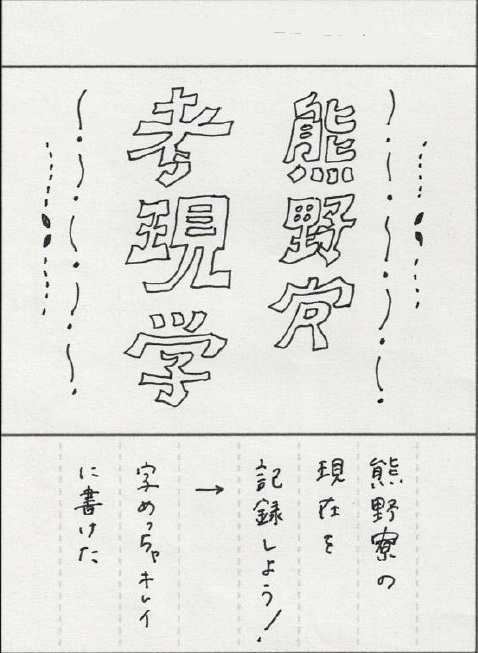 熊野寮
考現学
熊野寮の
現在を
記録しよう!
→
字めっちゃキレイ
に書けた